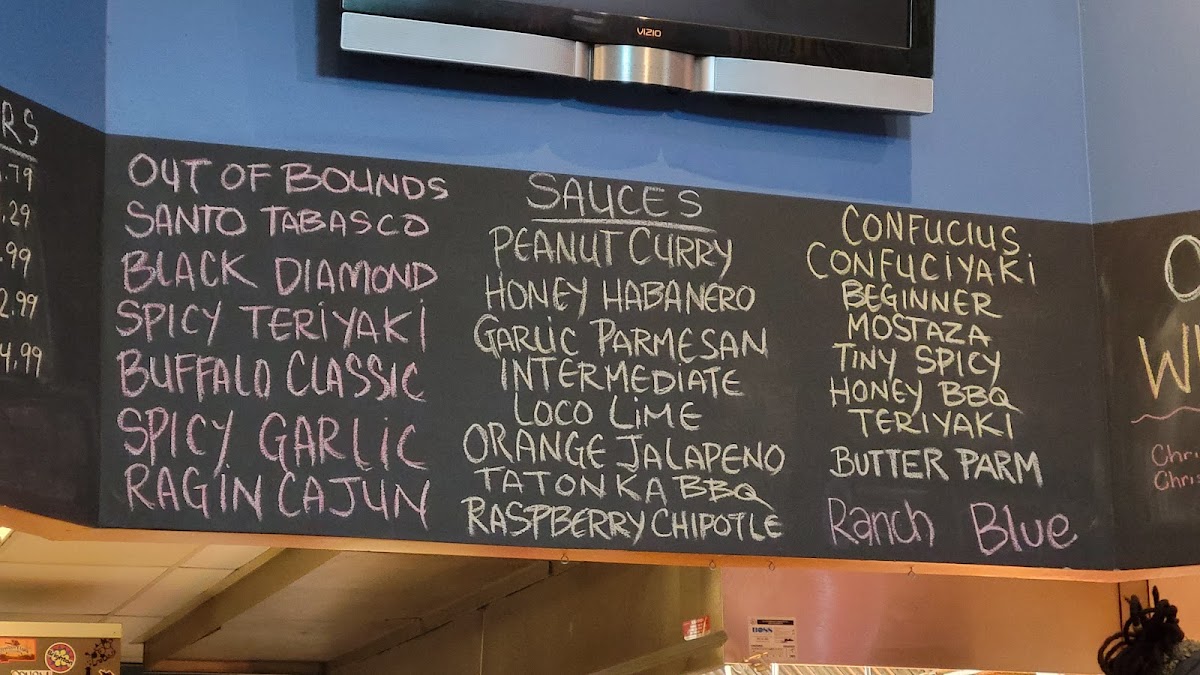 VIZIO
RS
.79
.29
.99
2.99
4.99
OUT OF BOUNDS
SANTO TABASCO
BLACK DIAMOND
SPICY TERIYAKI
BUFFALO CLASSIC
SPICY GARLIC
RAGIN CAJUN
SAUCES
PEANUT CURRY
HONEY HABANERO
GARLIC PARMESAN
INTERMEDIATE
LOCO LIME
ORANGE JALAPENO
TATONKA BBQ
RASPBERRY CHIPOTLE
CONFUCIUS
CONFUCIYAKI
BEGINNER
MOSTAZA
TINY SPICY
HONEY BBQ
TERIYAKI
BUTTER PARM
Ranch Blue
O
W
Chri
Chris